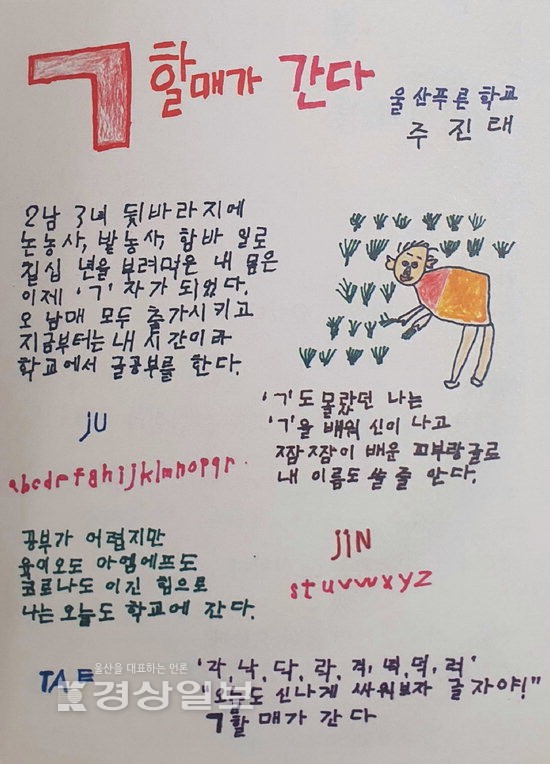 ㄱ할매가 간다
울산푸른학교
주진태
2남 3녀 뒷바라지에
논농사, 밭농사, 함바 일로
칠십 년을 부려먹은 내 몸은
이제 'ㄱ' 자가 되었다.
오 남매 모두 출가시키고
지금부터는 내 시간이라
학교에서 글공부를 한다.
'ㄱ'도 몰랐던 나는
'ㄱ'을 배워 신이 나고
짬짬이 배운 꼬부랑글로
내 이름도 쓸 줄 안다.
JU
abcdefghijklmnopqr
공부가 어렵지만
육이오도 아엠에프도
코로나도 이긴 힘으로
나는 오늘도 학교에 간다.
JIN
stuvwxyz
TAE
'각, 낙, 닥, 락, 격, 녁, 덕, 럭'
도 신나게 싸워보자 글자야!"
ㄱ할매가 간다
울산을 대표하는 언론
경상일보